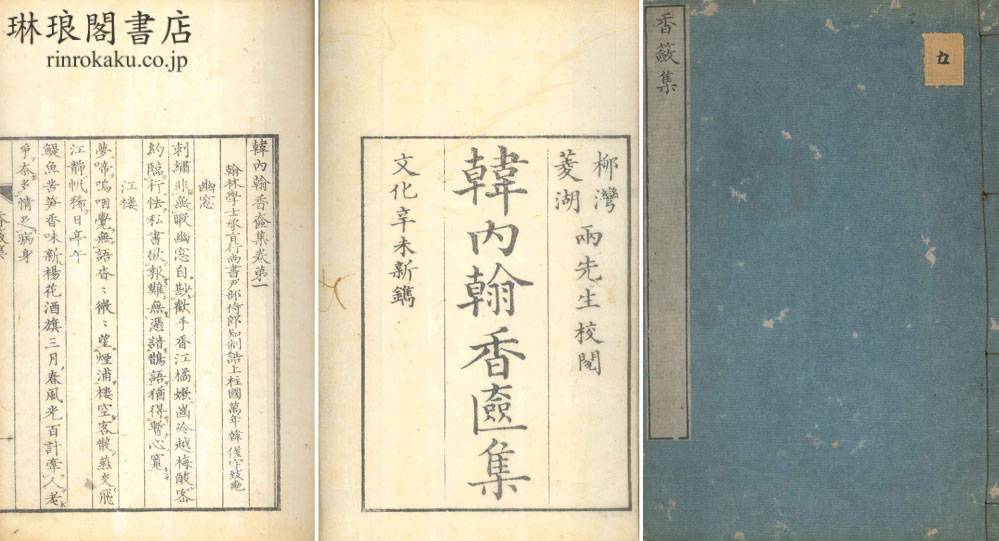 琳琅閣書店
rinrokaku.co.jp
香籢集
柳灣
菱湖
兩先生校閲
韓内翰香匳集
文化辛未新鐫
韓内翰香奩集卷第一
翰林學士承旨行尚書戸部侍郎知制誥上柱國萬年韓偓字致堯
幽窓
刺繡非無暇幽窓自尠歡手香江橘嫩齒冷越梅酸密
約臨行怯私書欲報難無憑諳鵲語猶得暫心寬
江樓
夢啼嗚咽覺無語杳〻微〻望煙浦樓空客散燕交飛
江靜帆稀日亭午
鯷魚苦笋香味新楊花酒旗三月春風光百計牽人老
爭奈多情是病身